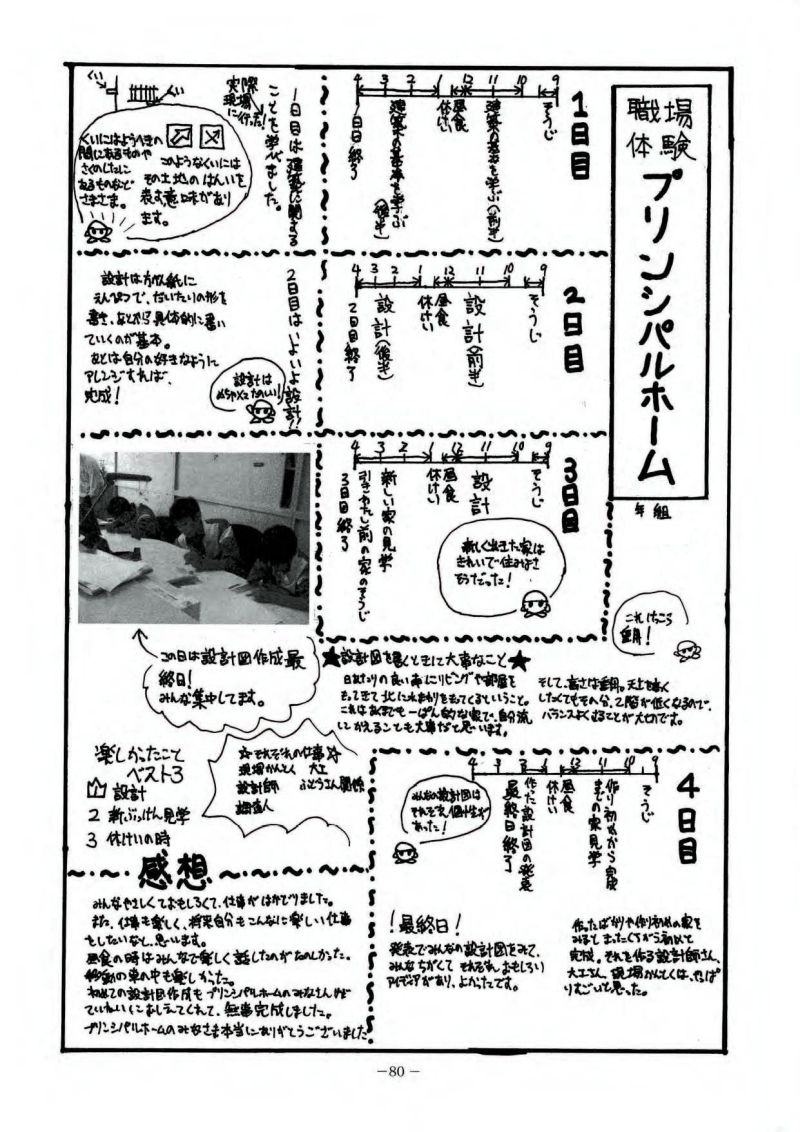 職場
体験
プリンシパルホーム
年 組
1日目
9 10 11 12 1 2 3 4
そうじ
建築の基本を学ぶ(前半)
昼食
休けい
建築の基本を学ぶ(後半)
1日目終了
1日目は建築に関する
ことを学びました。
実際
現場
に行った!
くい
くい
くいにはようへきの
間にあるものや
さくのしたに
あるものなど
さまざま。
このようなくいには
その土地のはんいを
表す意味があり
ます。
2日目
9 10 11 12 1 2 3 4
そうじ
設計(前半)
昼食
休けい
設計(後半)
2日目終了
2日目はいよいよ設計!!
設計は方がん紙に
えんぴつで、だいたいの形を
書き、あとから具体的に書い
ていくのが基本。
あとは自分の好きなように
アレンジすれば、
完成!
設計は
めちゃくちゃたのしい!
3日目
9 10 11 12 1 2 3 4
そうじ
設計
昼食
休けい
新しい家の見学
引きわたし前の家のそうじ
3日目終了
新しくできた家は
きれいで住みやすさ
そうだった!
この日は設計図作成最
終日!
みんな集中してます。
★設計図を書くときに大事なこと★
日あたりの良い南にリビングや部屋を
もってきて北に水まわりをもってくるということ。
これはあくまでも一ぱん的な家で、自分流
にかえることも大事だと思います。
そして、高さは重要。天上を高く
したくてもその分、2階が低くなるので、
バランスよくすることが大切です。
楽しかったこと
ベスト3
1 設計
2 新ぶっけん見学
3 休けいの時
☆それぞれの仕事☆
現場かんとく 大工
設計師 ふどうさん関係
調査人
4日目
9 10 11 12 1 2 3 4
そうじ
作り初めから完成
までの家見学
昼食
休けい
作った設計図の発表
最終日終了
みんなの設計図は
それぞれ個性が
あった!
!最終日!
発表でみんなの設計図をみて、
みんなちがくてそれぞれおもしろい
アイディアがあり、よかったです。
作ったばかりや作り初めの家を
みると まったくちがう初めて
完成。それを作る設計師さん、
大工さん、現場かんとくは、やっぱ
りすごいと思った。
感想
みんなやさしくておもしろくて、仕事がはかどりました。
また、仕事も楽しく、将来自分もこんなに楽しい仕事
をしたいなと、思います。
昼食の時はみんなで楽しく話したのがたのしかった。
移動の車の中も楽しかった。
初めての設計図作成もプリンシパルホームのみなさんがて
いねいにおしえてくれて、無事完成しました。
プリンシパルホームのみなさま本当にありがとうございました
－80－